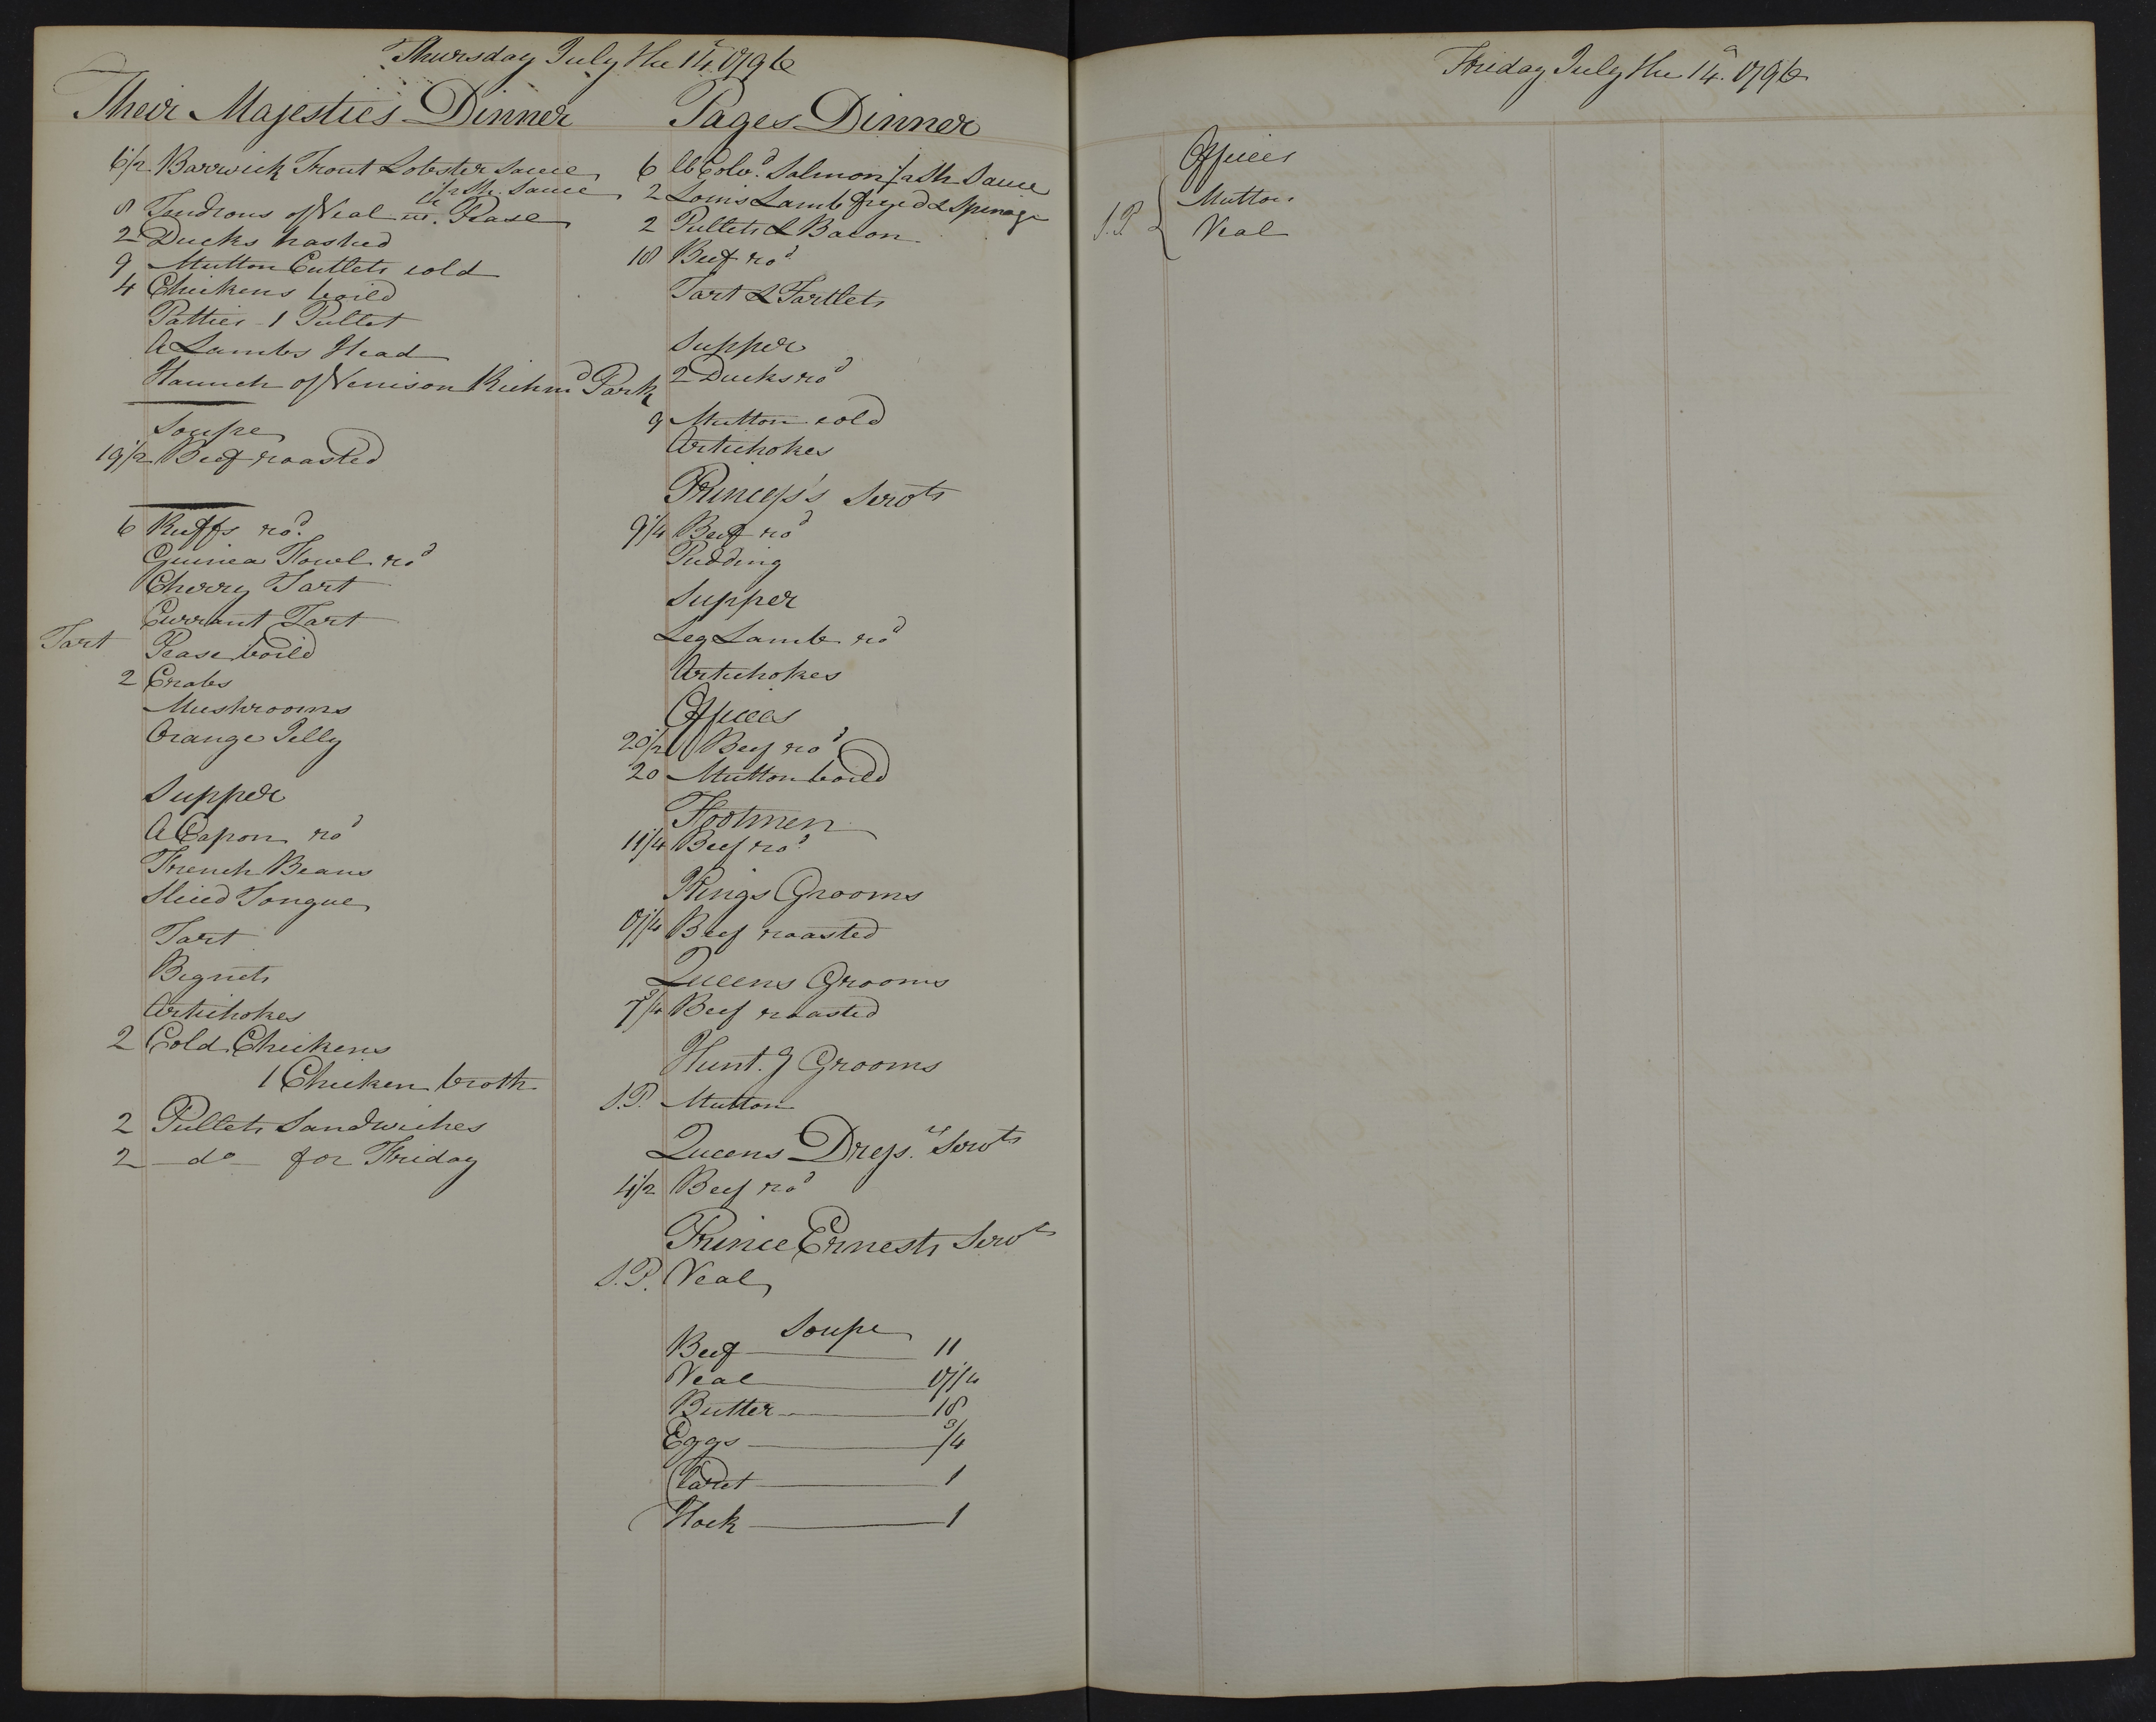 Thursday July the 14, 1796
Their Majesties Dinner
6 1/2 Barwick Trout Lobster Sauce
1/2 Sh. Sauce
8 Tendrons of Veal w.th Pease
2 Ducks hashed
9 Mutton Cutlets cold
4 Chickens boild
Patties 1 Pullet
A Lambs Head
Haunch of Venison Richm.d Park
Soupe
19 1/2 Beef roasted
6 Ruffs ro.d
Guinea Fowl ro.d
Cherry Tart
Currant Tart
Tart Pease boild
2 Crabs
Mushrooms
Orange Jelly
Supper
A Capon ro.d
French Beans
Sliced Tongue
Tart
Bignets
Artichokes
2 Cold Chickens
1 Chicken broth
2 Pullets Sandwiches
2 do for Friday
Pages Dinner
6 lb Salmon 1/2 Sh Sauce
2 Loins Lamb fryed & Spinage
2 Pullets & Bacon
18 Beef ro.d
Tart & Tartlets
Supper
2 Ducks ro.d
9 Mutton cold
Artichokes
Princess's Serv.ts
9 1/4 Beef ro.d
Pudding
Supper
Leg Lamb ro.d
Artichokes
Offices
20 1/2 Beef ro.d
20 Mutton boild
Footmen
11 1/4 Beef ro.d
Kings Grooms
Beef roasted
Queens Grooms
7 3/4 Beef roasted
Hunt.g Grooms
S.P. Mutton
Queens Dress.rs Serv.ts
4 1/2 Beef ro.d
Prince Ernests Serv.ts
S.P. Veal
Soupe
Beef 11
Veal
Butter 18
Eggs 3/4
Claret 1
Hock 1
Friday July the 1796
Offices
S.P. { Mutton
Veal